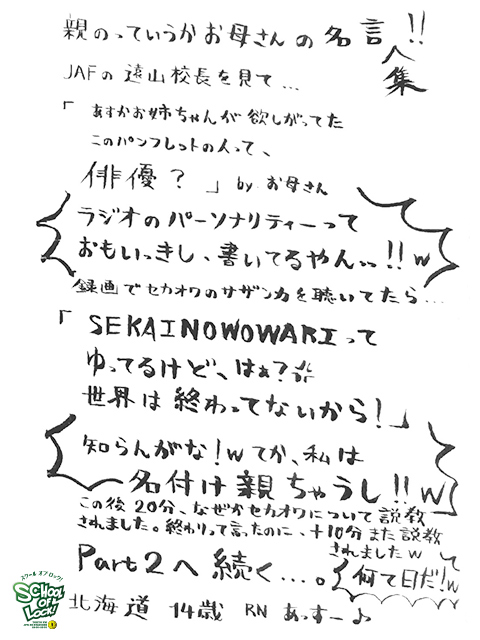 親のっていうかお母さんの名言集!!
JAFの遠山校長を見て...
「あすかお姉ちゃんが欲しがってた
このパンフレットの人って、
俳優？」by お母さん
ラジオのパーソナリティーって
おもいっきし、書いてるやんっ!!w
録画でセカオワのサザンカを聴いてたら...
「SEKAINOWOWARIって
ゆってるけど、はぁ?
世界は終わってないから!」
知らんがな!wてか、私は
名付け親ちゃうし!!w
この後20分、なぜかセカオワについて説教
されました。終わりって言ったのに、+10分また説教
されましたw
Part2へ続く....。
何て日だ!w
スクールオブロック!
SCHOOL OF LOCK!
北海道 14歳 RN あっすー♪